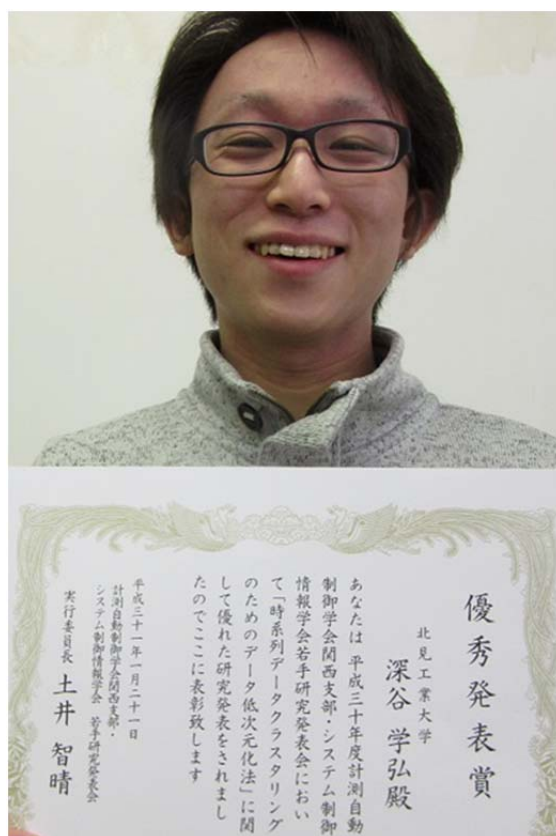 優秀発表賞
北見工業大学
深谷 学弘殿
あなたは 平成三十年度計測自動
制御学会関西支部・システム制御
情報学会若手研究発表会におい
て「時系列データクラスタリング
のためのデータ低次元化法」に関
して優れた研究発表をされまし
たのでここに表彰致します
平成三十一年一月二十一日
計測自動制御学会関西支部・
システム制御情報学会 若手研究発表会
実行委員長 土井 智晴